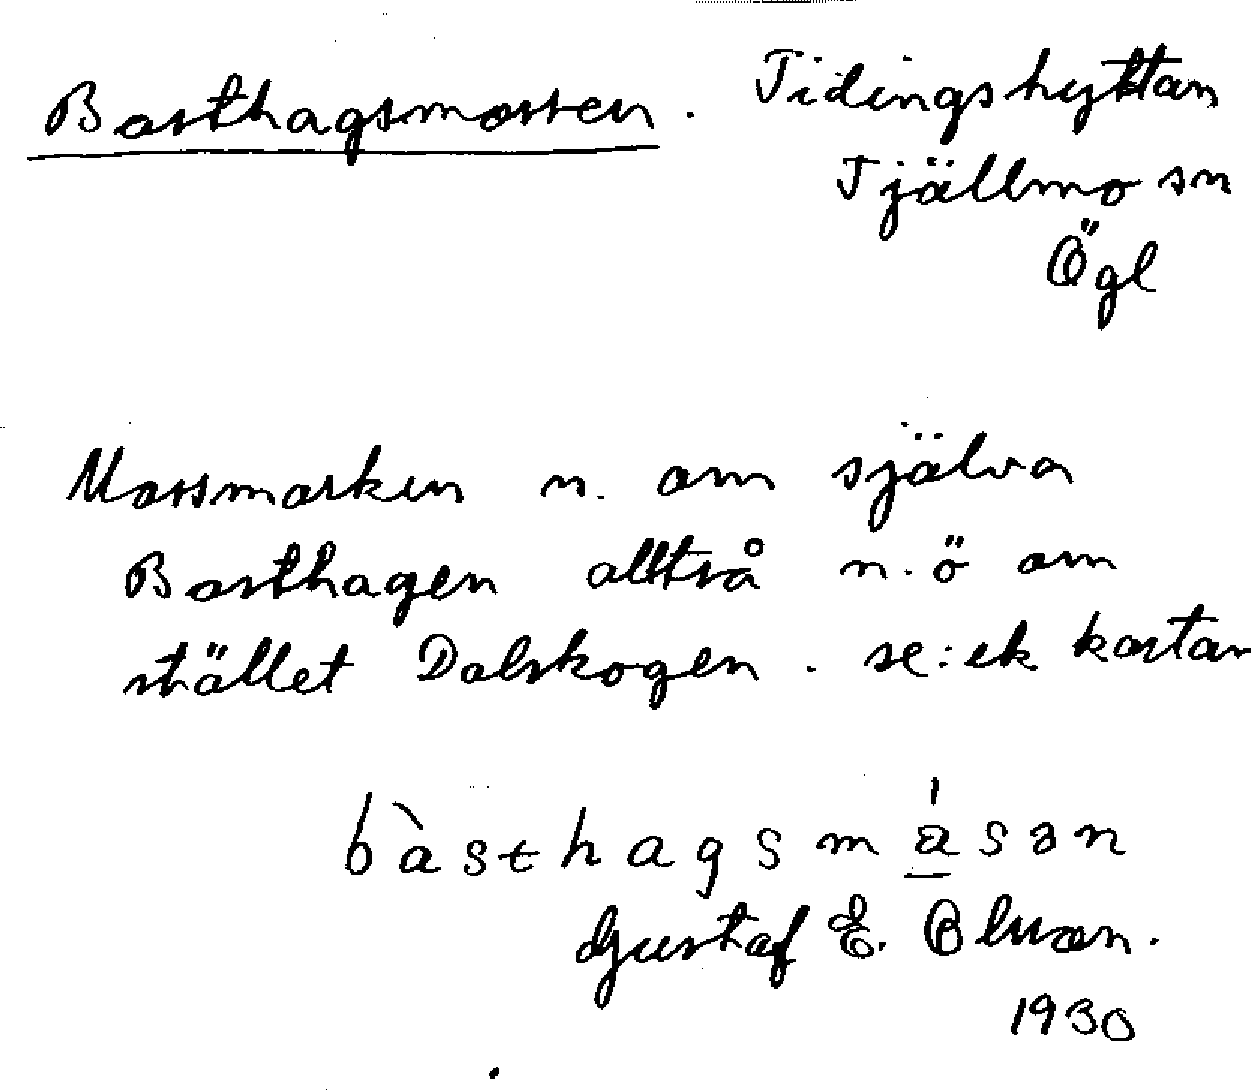 Basthagsmossen. Tidingshyttan
Tjällmo sn
Ögl
Mossmarken n. om själva
Basthagen alltså n.ö om
stället Dalskogen. se: ek kartan
bàsthagsmåsən
Gustaf E. Bluan.
1930